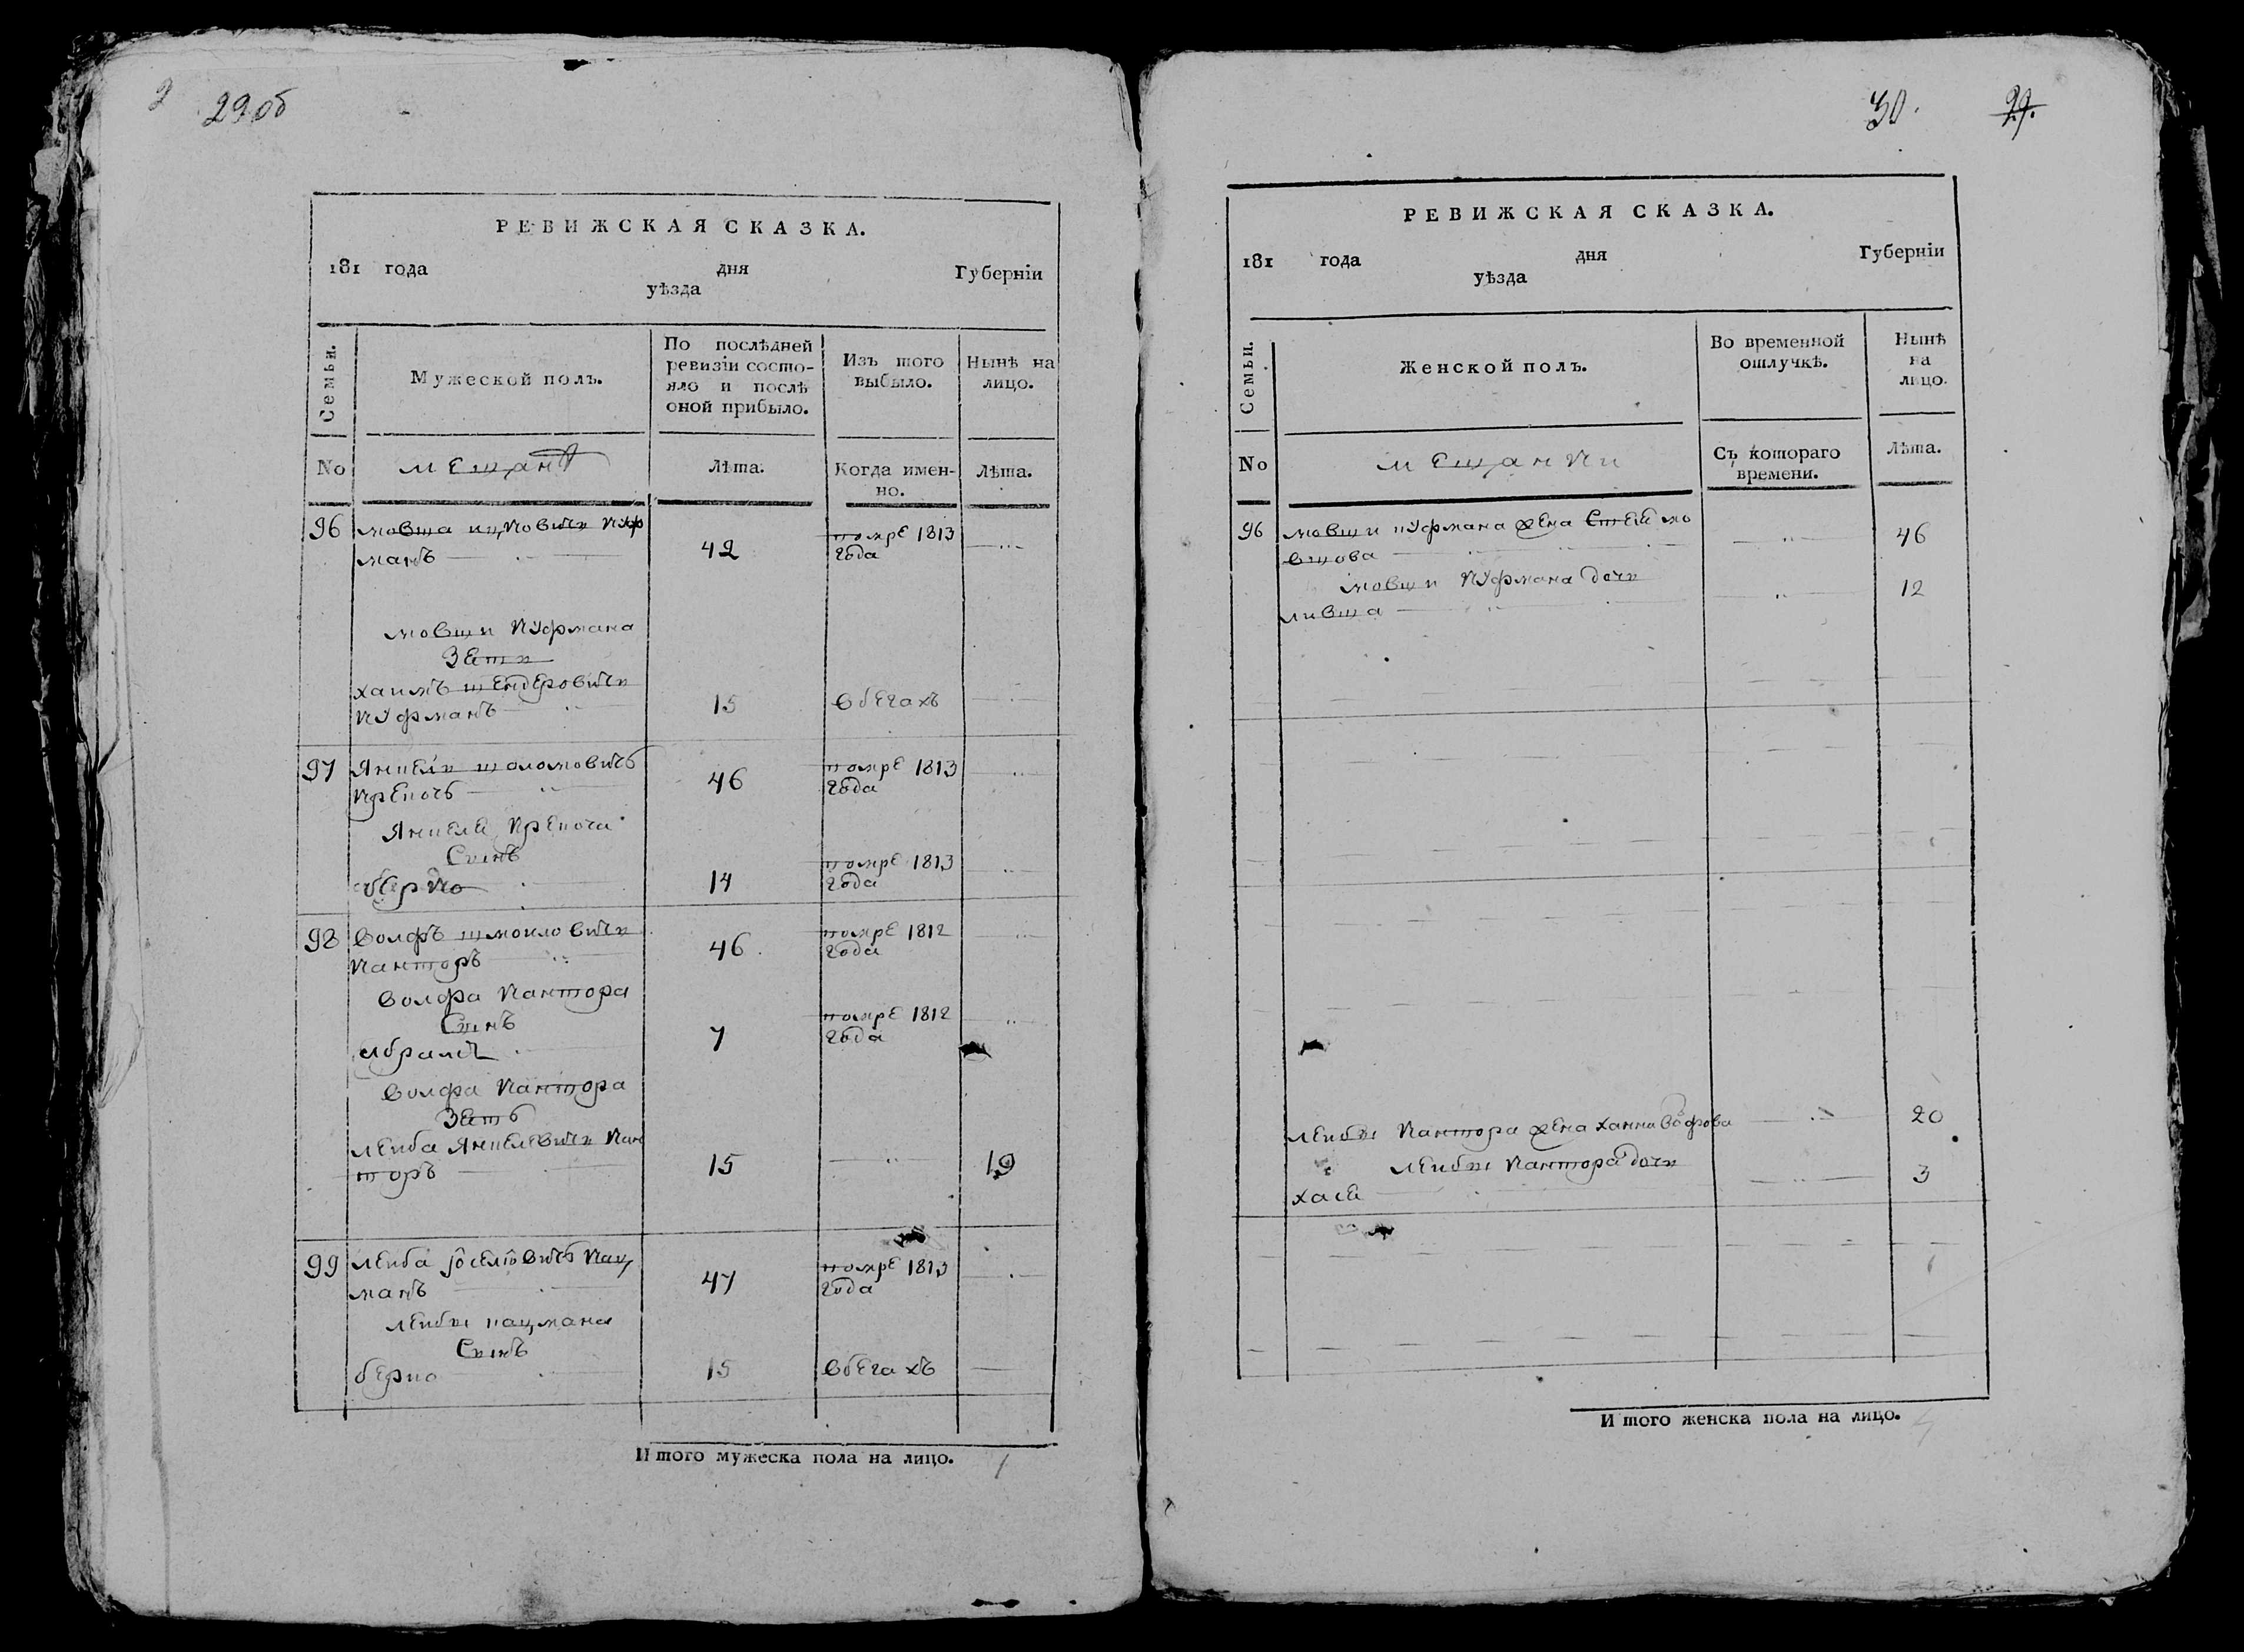 29об
РЕВИЖСКАЯ СКАЗКА.
181 года дня Губерніи
уѣзда
Семьи.
Мужеской полъ.
По послѣдней
ревизіи состо-
яло и послѣ
оной прибыло.
Изъ того
выбыло.
Нынѣ на
лицо.
No
мещанъ
Лѣта.
Когда имен-
но.
Лѣта.
96 мовша ицковичь куф
манъ 42 помре 1813
года
мовши куфмана
зети
хаимъ шендеровичь
куфманъ 15 вбегахъ
97 Янкель шоломовичъ
46 помре 1813
года
Янкеля
Синъ
берко 14 помре 1813
года
98 волфъ шмоиловичь
канторъ 46 помре 1812
года
волфа кантора
Синъ
абрамъ 7 помре 1812
года
волфа кантора
зеть
леиба Янкелевичь кан
торъ 15 19
99 леиба іоселіовичъ кац
манъ 47 помре 1813
года
леибы кацмана
Синъ
берко 15 вбегахъ
Итого мужеска пола на лицо. 1
30. 29.
РЕВИЖСКАЯ СКАЗКА.
181 года дня Губерніи
уѣзда
Семьи.
Женской полъ.
Во временной
отлучкѣ.
Нынѣ
на
лицо.
No
мещанки
Съ котораго
времени.
Лѣта.
96 мовши куфмана жена мо
вшова 46
мовши куфмана дочь
ливша 12
леибы кантора жена ханна 20
леибы кантора дочь
хася 3
Итого женска пола на лицо. 4